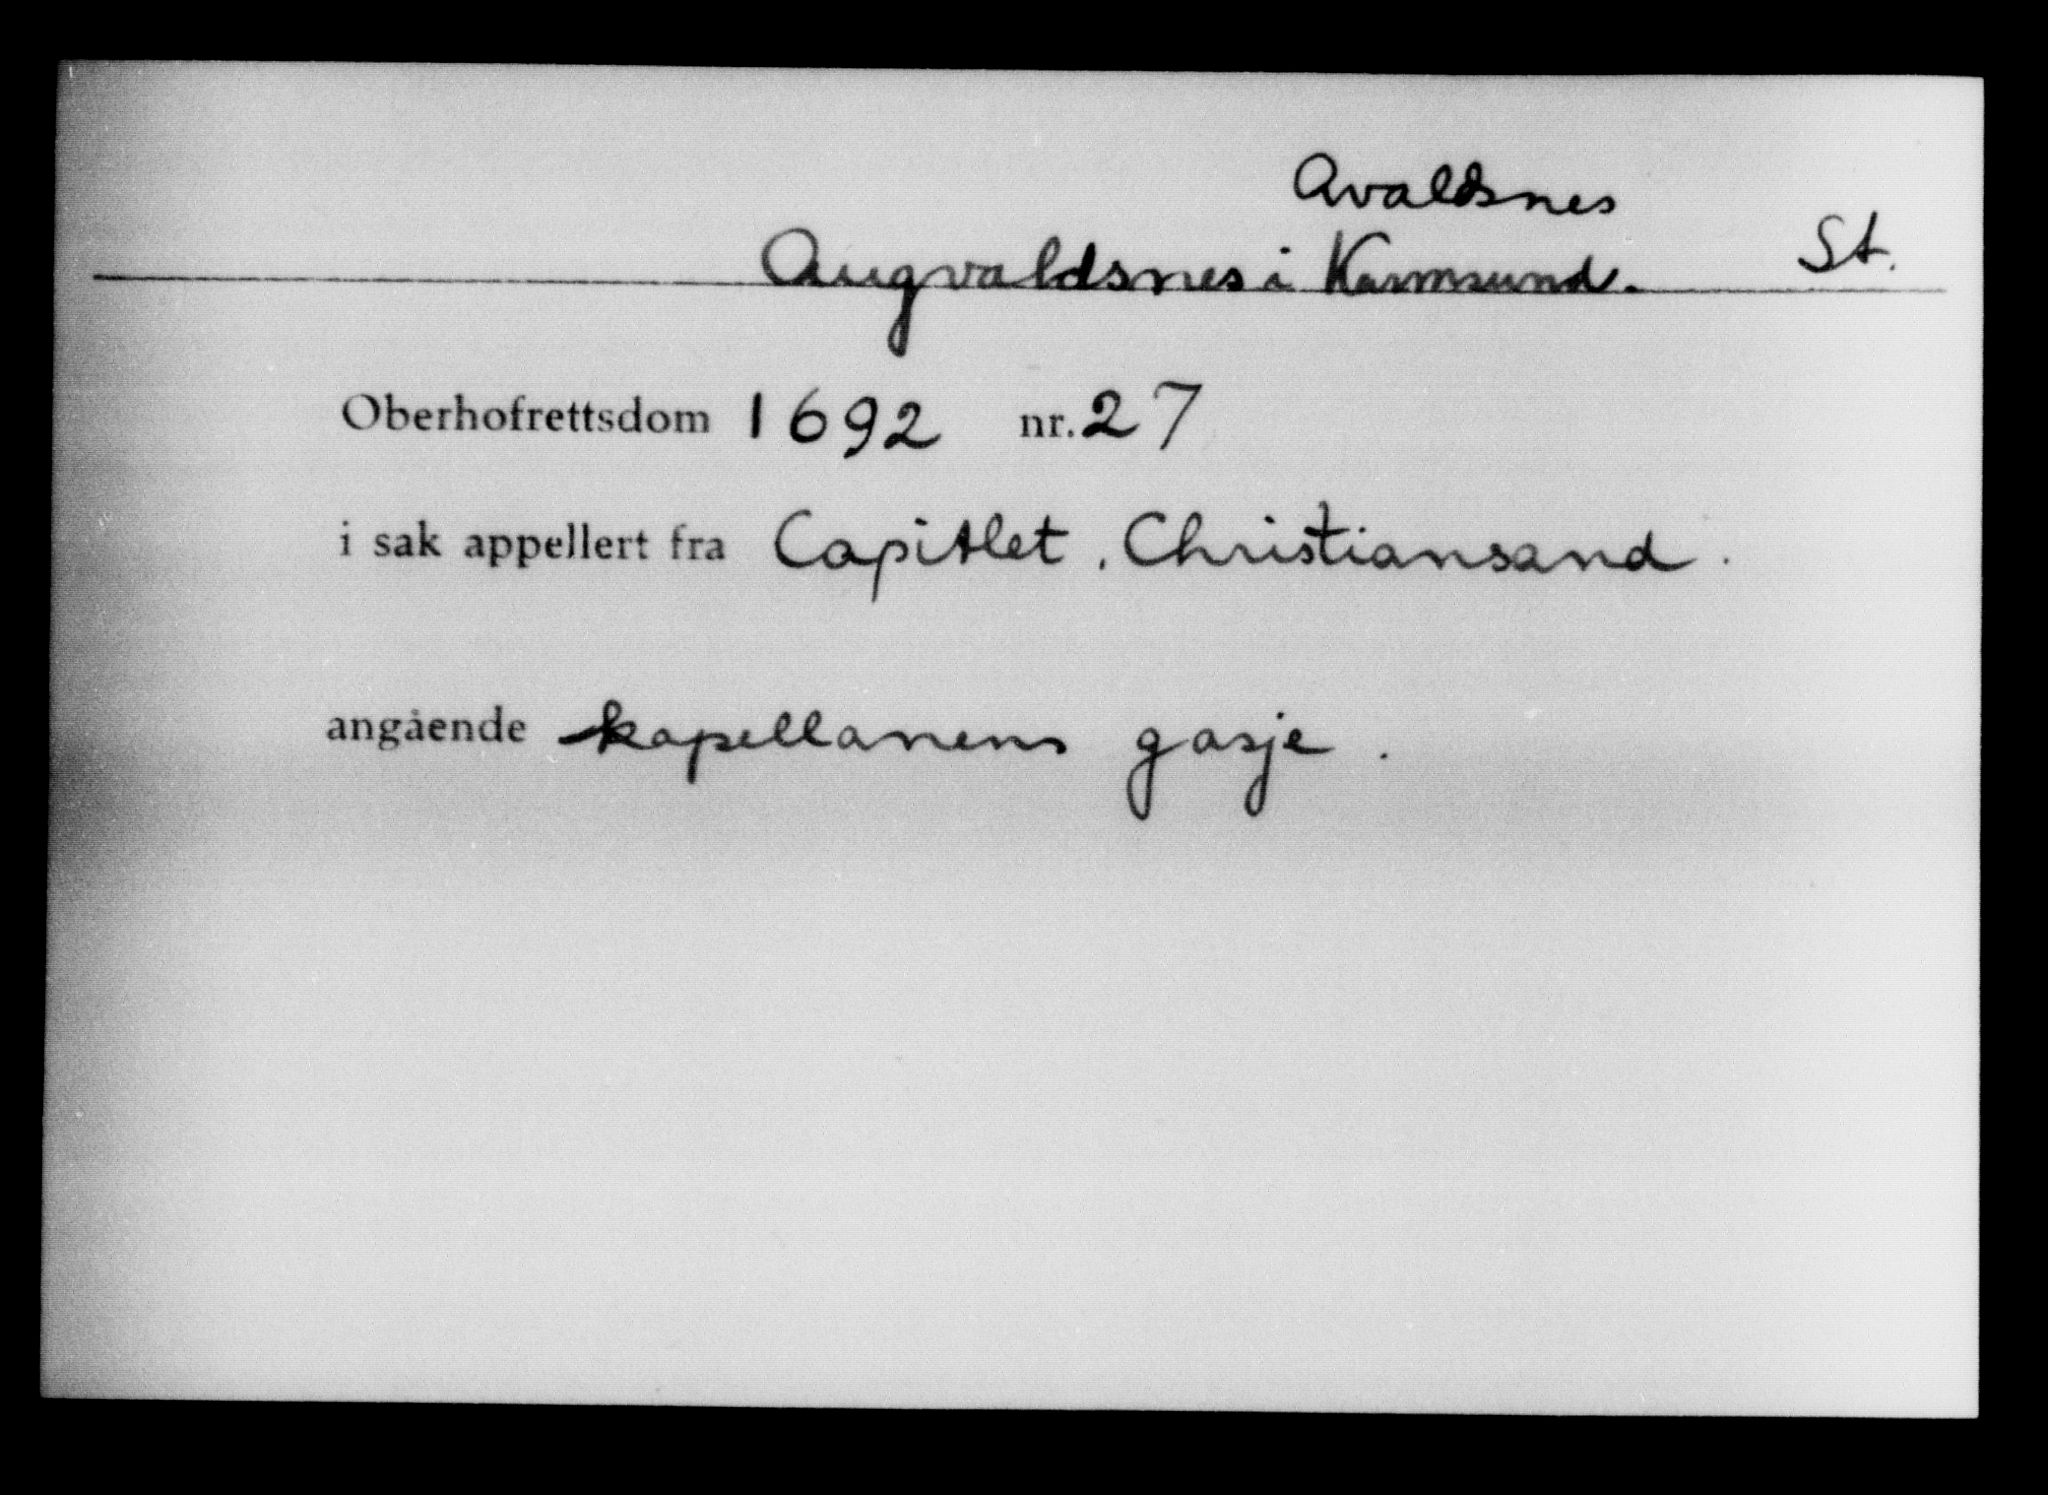 Avaldsnes
Augvaldsnes i Karmsund. St.
Oberhofrettsdom 1692 nr. 27
i sak appellert fra Capitlet, Christiansand.
angående kapellanens gasje.